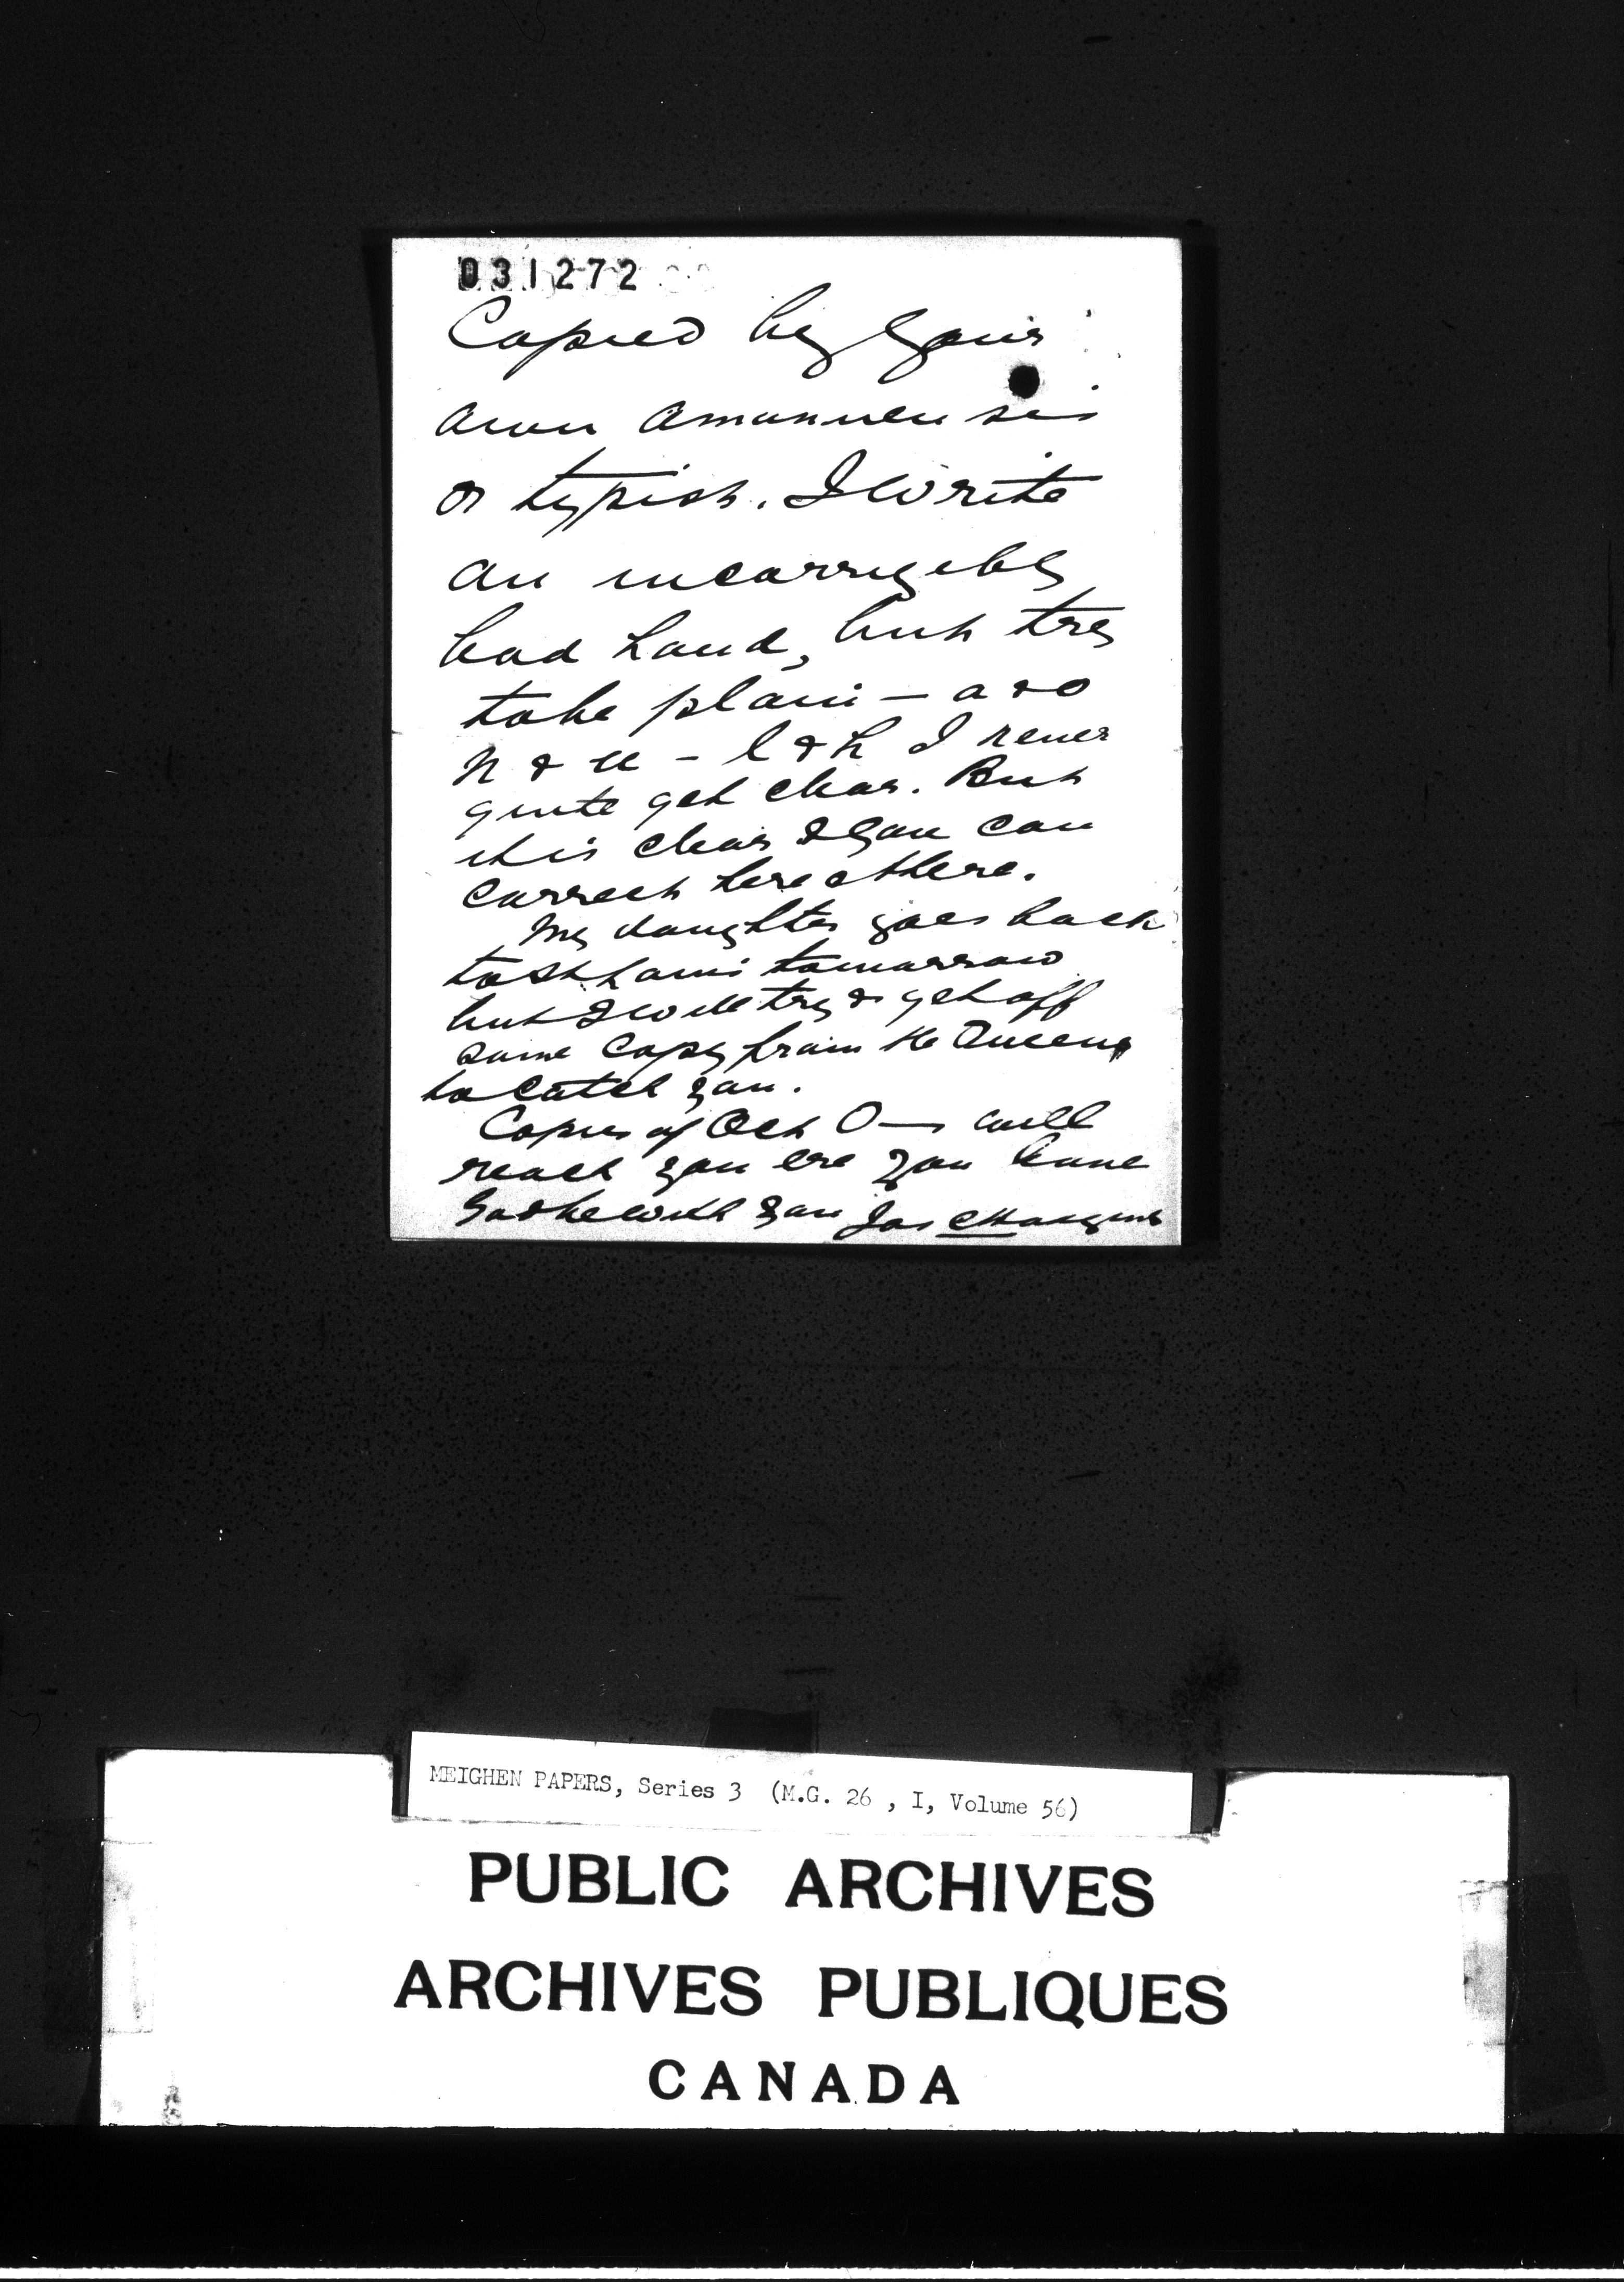 031272
Copied by your
own amanuensis
or typist. I write
an incorrigibly
bad hand, but try
to be plain — a & o
n & u — l & h I never
quite get clear. But
it is clear & you can
correct here & there.
My daughter goes back
to tomorrow
but I will try & get off
some copy from the Queens
to catch you.
Copies of Oct O— will
reach you ere you leave
God be with you Jas
MEIGHEN PAPERS, Series 3 (M.G. 26 , I, Volume 56)
PUBLIC ARCHIVES
ARCHIVES PUBLIQUES
CANADA